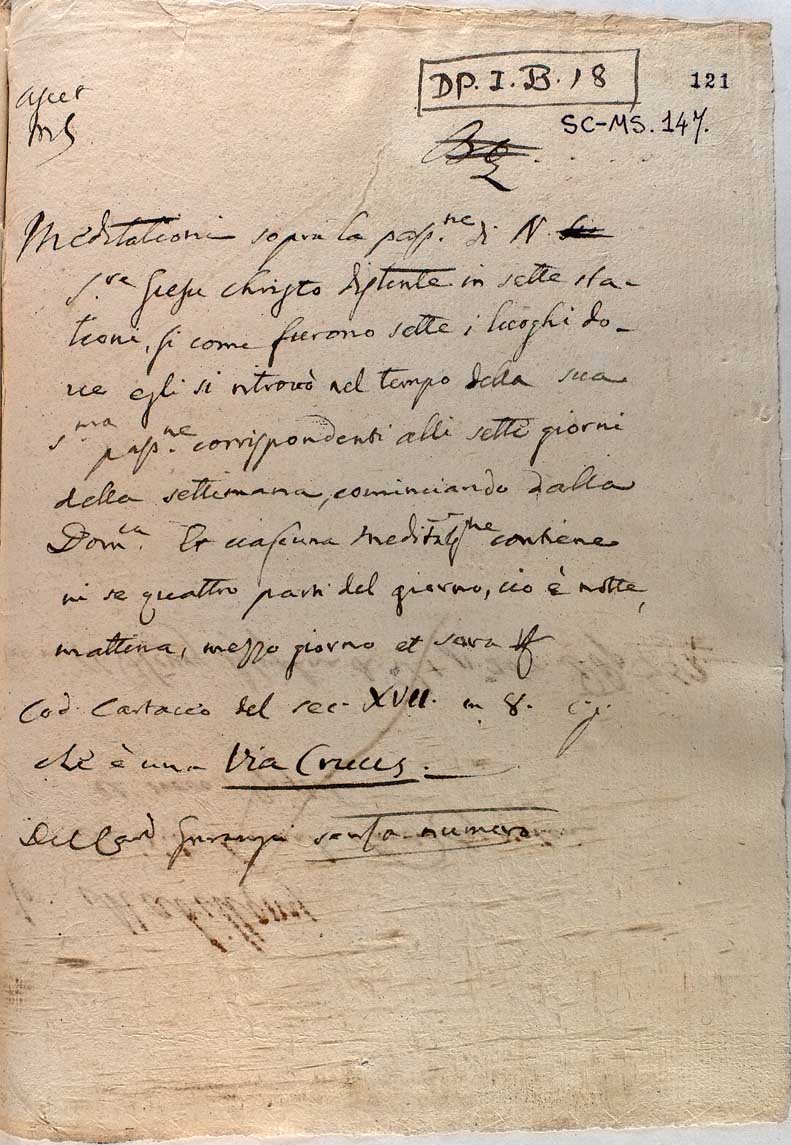 DP. I. B. 18
121
SC-MS. 147.
Ascet
MS
Meditationi sopra la pass.ne di N.
S.re Giesu Christo distente in sette sta-
tioni, si come furono sette i luoghi do-
ue egli si ritrovò nel tempo della sua
s.ma pass.ne corrispondenti alli sette giorni
della settimana, cominciando dalla
Dom.ca. Et ciascuna meditat.ne contiene
in se quattro parti del giorno, cio è notte,
mattina, mezzo giorno et sera
Cod. Cartaceo del sec. XVII. in 8.
che è una Via Crucis.
Del Card Garampi senza numero